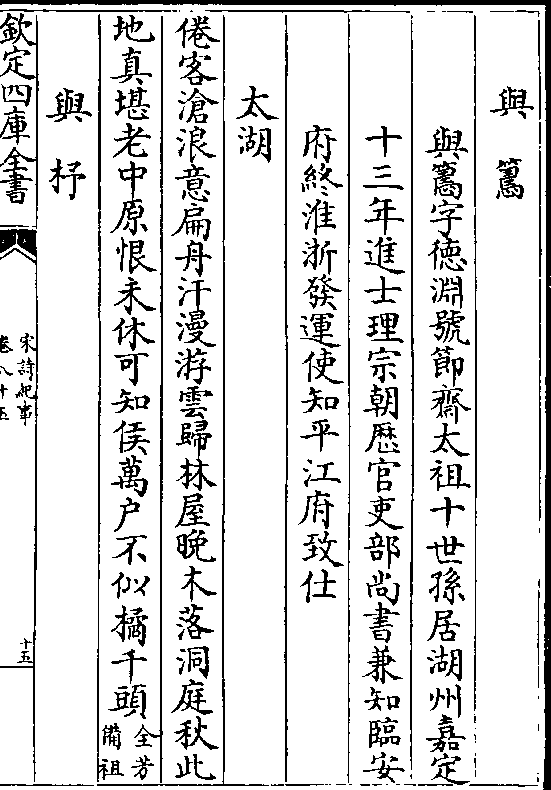 與籌
與籌字徳淵號節齋太祖十世孫居湖州嘉定
十三年進士理宗朝歴官吏部尚書兼知臨安
府終淮浙發運使知平江府致仕
太湖
倦客滄浪意扁舟汗漫游雲歸林屋晩木落洞庭秋此
地真堪老中原恨未休可知侯萬户不似橘千頭全芳
備祖
與杼
欽定四庫全書
宋詩紀事
卷八十五
十五